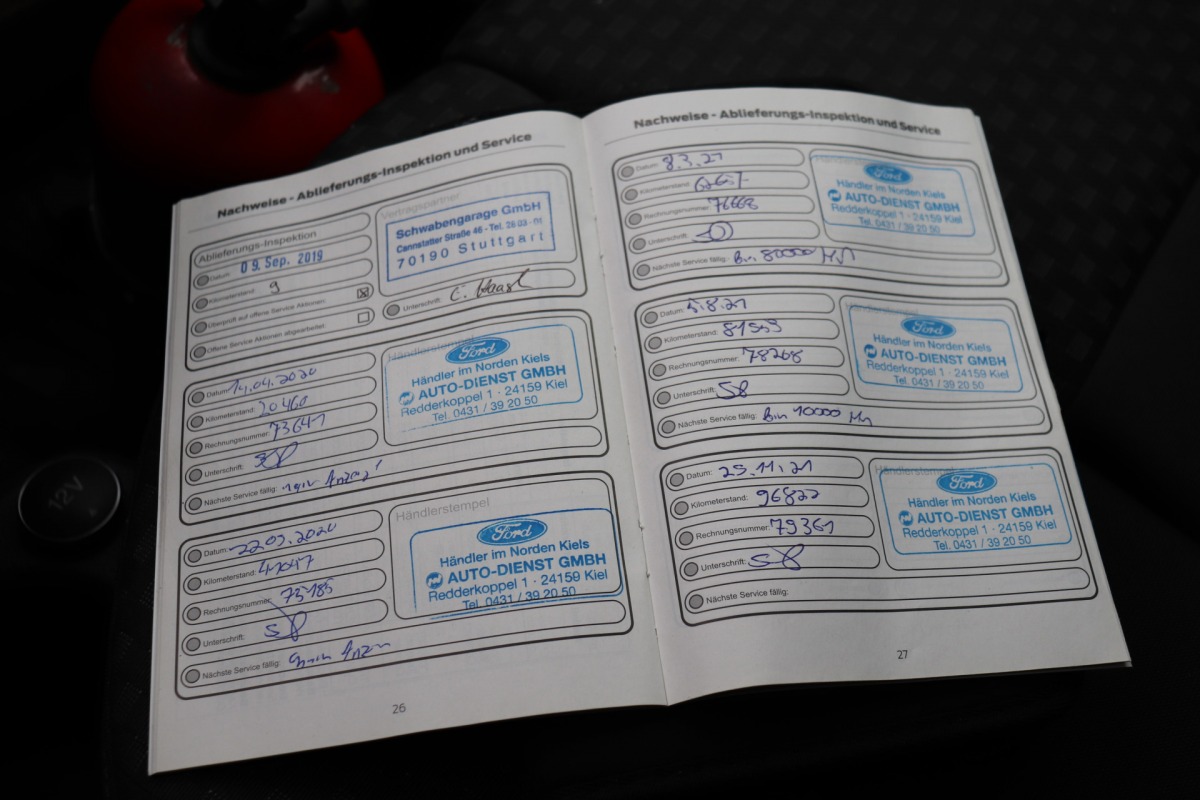 Nachweise - Ablieferungs-Inspektion und Service
Ablieferungs-Inspektion
Datum: 09. Sep. 2019
Kilometerstand: 9
Überprüft auf offene Service Aktionen:
Offene Service Aktionen abgearbeitet:
Vertragspartner
Schwabengarage GmbH
Cannstatter Straße 46 - Tel. 28 03 - 01
70190 Stuttgart
Unterschrift:
Datum: 14.04.2020
Kilometerstand: 20460
Rechnungsnummer: 73641
Unterschrift:
Nächste Service fällig:
Händlerstempel
Ford
Händler im Norden Kiels
AUTO-DIENST GMBH
Redderkoppel 1 · 24159 Kiel
Tel. 0431 / 39 20 50
Datum: 22.09.2020
Kilometerstand: 41047
Rechnungsnummer: 75185
Unterschrift:
Nächste Service fällig:
Händlerstempel
Ford
Händler im Norden Kiels
AUTO-DIENST GMBH
Redderkoppel 1 · 24159 Kiel
Tel. 0431 / 39 20 50
26
Nachweise - Ablieferungs-Inspektion und Service
Datum: 8.3.21
Kilometerstand:
Rechnungsnummer: 76668
Unterschrift:
Nächste Service fällig: 80000
Ford
Händler im Norden Kiels
AUTO-DIENST GMBH
Redderkoppel 1 · 24159 Kiel
Tel. 0431 / 39 20 50
Datum: 5.8.21
Kilometerstand:
Rechnungsnummer: 78268
Unterschrift:
Nächste Service fällig:
Ford
Händler im Norden Kiels
AUTO-DIENST GMBH
Redderkoppel 1 · 24159 Kiel
Tel. 0431 / 39 20 50
Datum: 25.11.21
Kilometerstand: 96822
Rechnungsnummer: 79361
Unterschrift:
Nächste Service fällig:
Händlerstempel
Ford
Händler im Norden Kiels
AUTO-DIENST GMBH
Redderkoppel 1 · 24159 Kiel
Tel. 0431 / 39 20 50
27
12V